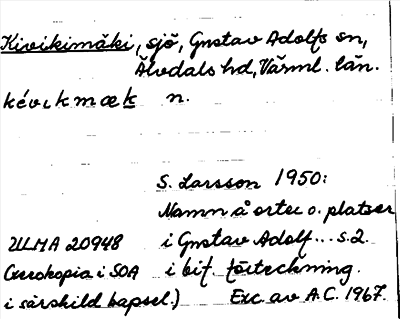 Kivikimäki, sjö, Gustav Adolfs sn,
Älvdals hd, Värml. län.
kévıkmæk n.
S. Larsson 1950:
Namn å orter o. platser
ULMA 20948 i Gustav Adolf... s. 2
(Xerokopia i SOA i bif. förteckning.
i särskild kapsel.) Exc. av A.C. 1967.